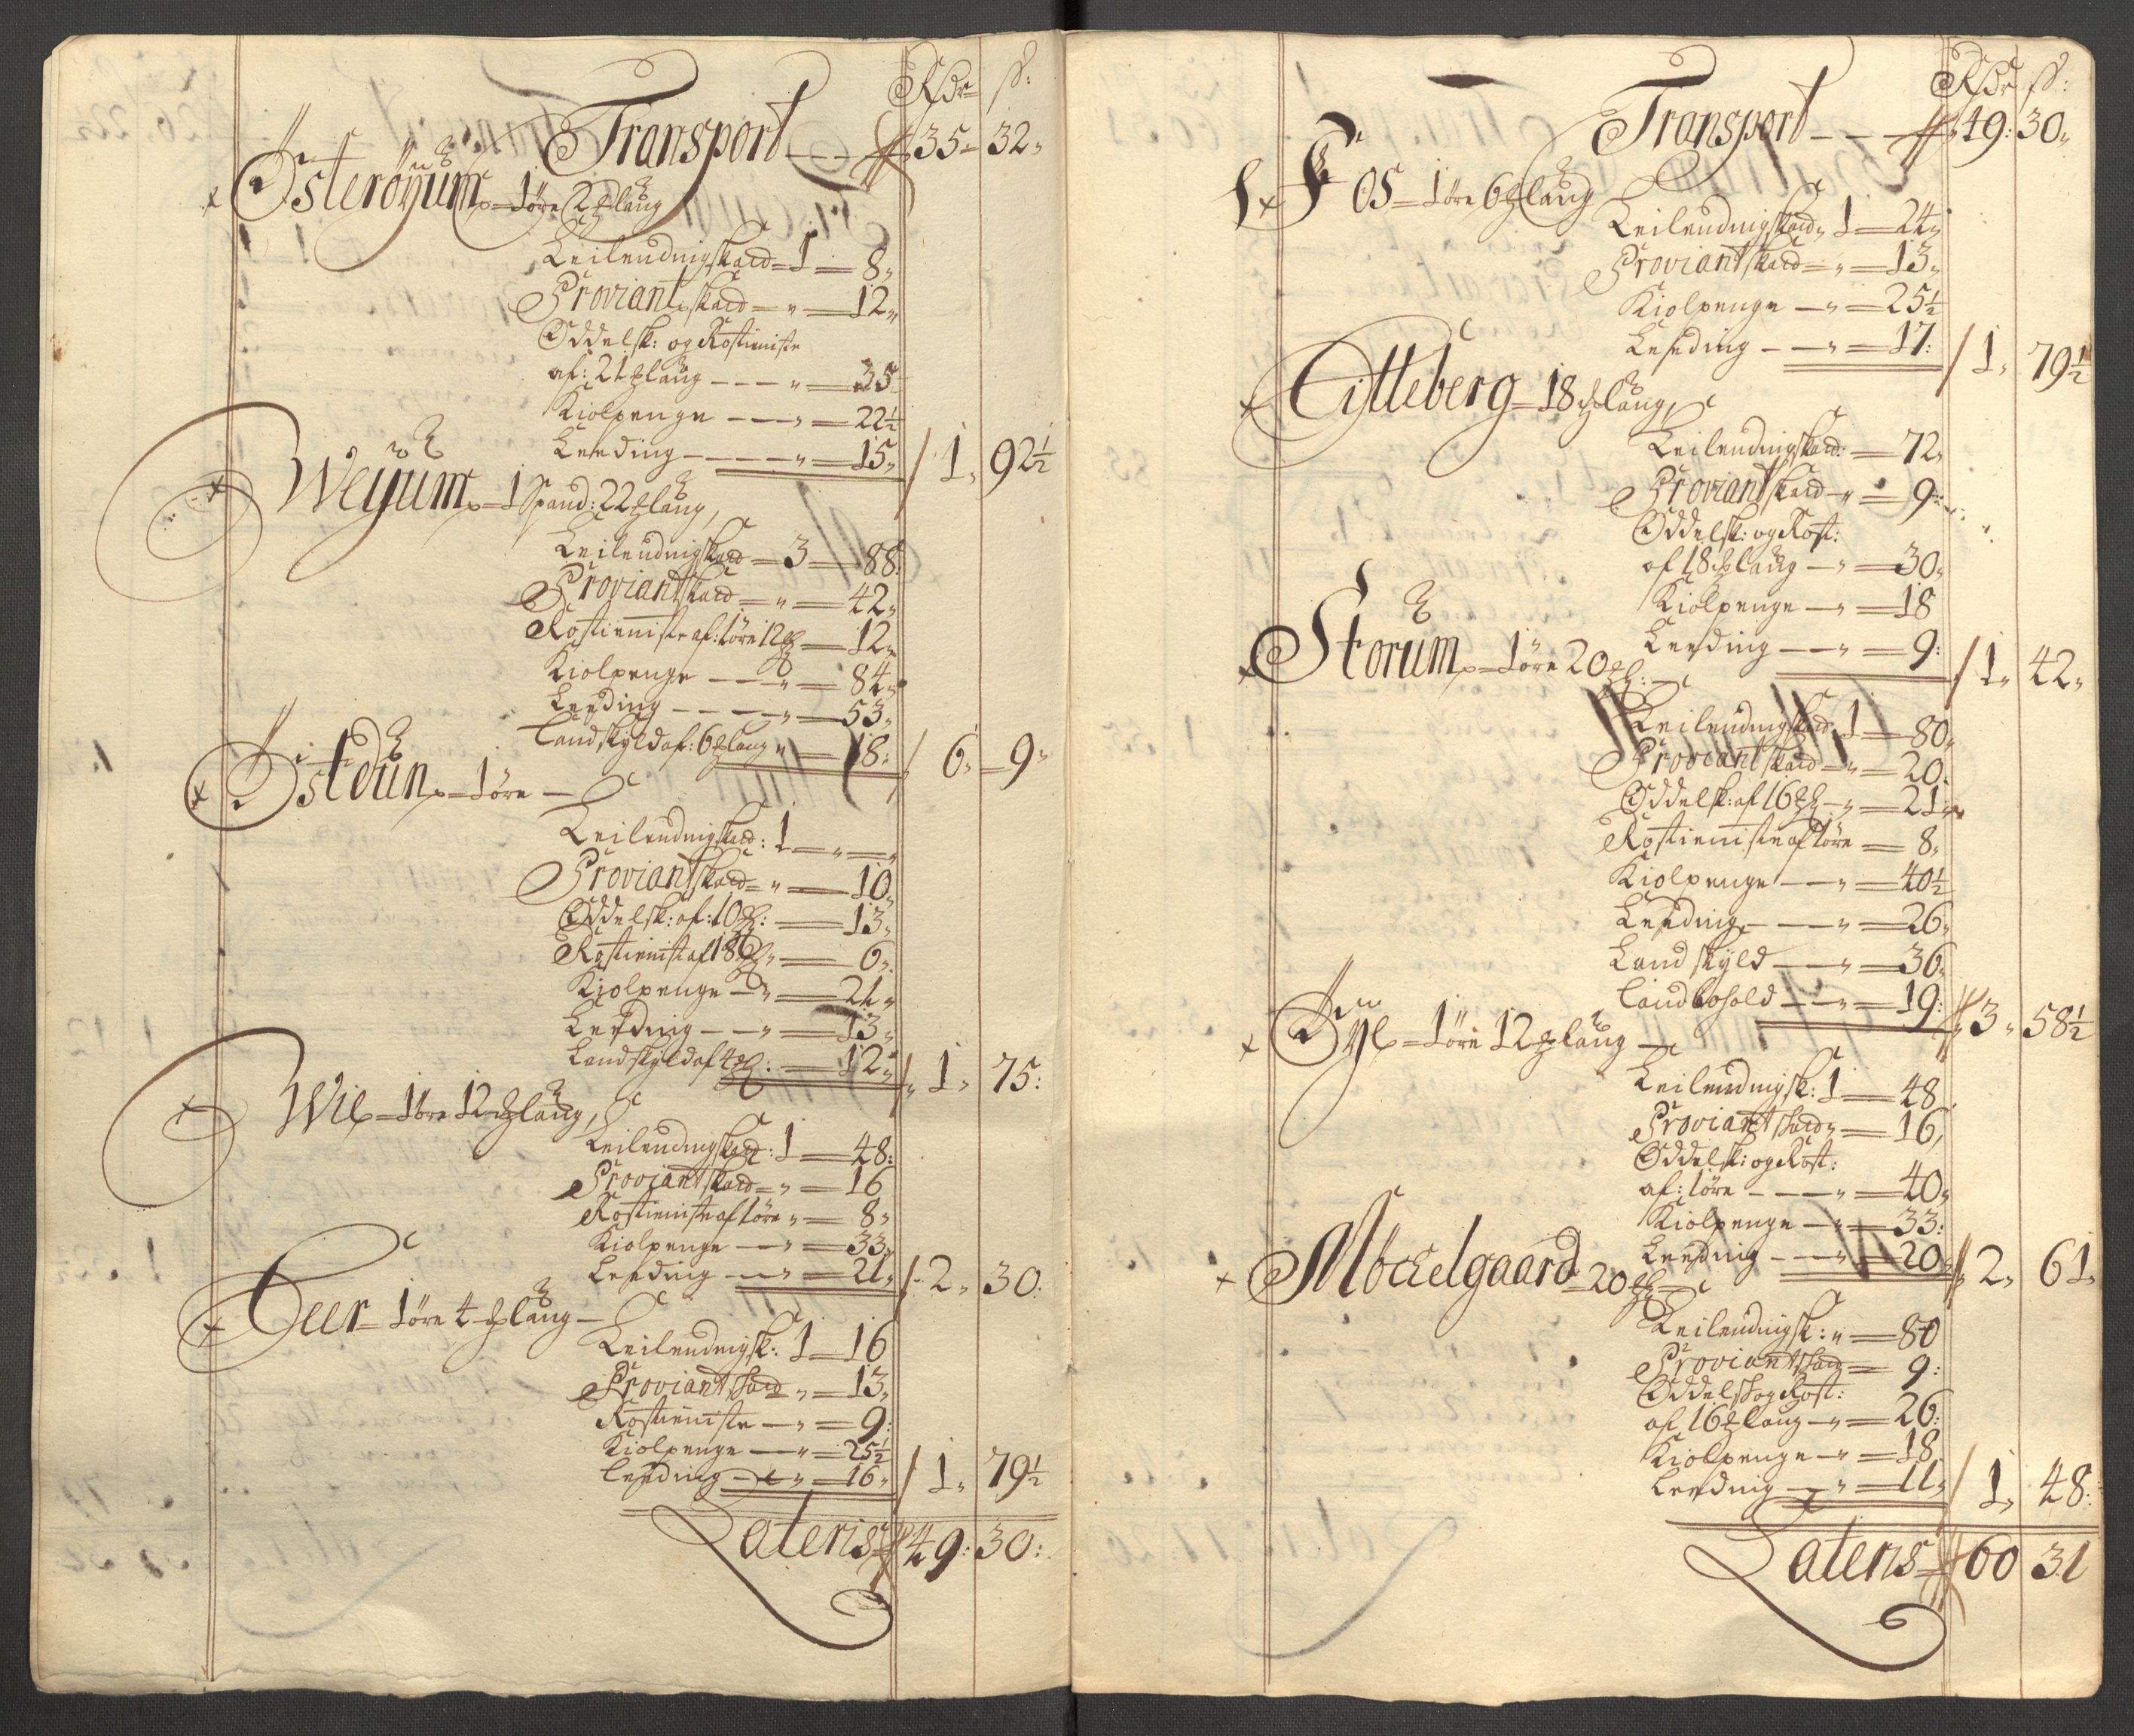 Rdr ß:
Transport — 35 - 32,,
Österöÿum - 1 öre 2 ℔ laug
Leilendingskatt = 1 = 8,,
Proviantskatt = ,, = 12,,
Oddelsk: og Rostieniste
af: 21 ℔ laug - - - ,, = 35
Kiolpenge - - - ,, = 22½
Leeding - - - - ,, = 15,, / 1,, 92½
Weÿum - 1 Spand: 22 ℔ laug,
Leilendingskatt = 3 = 88:
Proviantskatt = ,, = 42,,
Rostieniste af: 1 öre 12 ℔ = 12,,
Kiolpenge - - - ,, = 84,,
Leeding - - - - ,, = 53,,
Landskyld af: 6 ℔ laug ,, = 18,, / 6,, 9,,
Östdun - 1 öre -
Leilendingskatt: 1 = ,, =
Proviantskatt = ,, = 10,,
Oddelsk: af: 10 ℔: = 13,,
Rostienist af 18 ℔ ,, = 6,,
Kiolpenge - ,, = 21,,
Leeding - - ,, = 13,,
Landskyld af 4 ℔: = 12,, / 1,, 75:
Wie - 1 öre 12 ℔ laug,
Leilendingskatt: 1 = 48:
Proviantskatt = ,, = 16
Rostieniste af 1 öre ,, = 8,,
Kiolpenge - - ,, = 33,,
Leeding - - ,, = 21,, / 2,, 30:
Teer - 1 öre 4 ℔ laug -
Leilendingsk: 1 = 16
Proviantskatt ,, = 13,,
Rostieniste - ,, = 9:
Kiolpenge - - ,, = 25½
Leeding - - ,, = 16,, / 1,, 79½
Lateris 49: 30:
Rdr ß:
Transport - - 49: 30,,
Fos - 1 öre 6 ℔ laug
Leilendingskatt ,, 1 = 24,,
Proviantskatt = ,, = 13,,
Kiolpenge - ,, = 25½
Leeding - - ,, = 17: / 1,, 79½
Titteberg - 18 ℔ laug,
Leilendingskatt: = 72,,
Proviantskatt ,, = 9:
Oddelsk: og Rost:
af 18 ℔ laug - ,, = 30,,
Kiolpenge - ,, = 18
Leeding - - ,, = 9: / 1,, 42,,
Storum - 1 öre 20 ℔: -
Leilendingskatt: 1 = 80,,
Proviantskatt = ,, = 20:
Oddelsk: af 16 ℔ - ,, = 21,,
Rostieniste af 1 öre = 8,,
Kiolpenge - - ,, = 40½
Leeding - - - ,, = 26,,
Landskyld - - ,, = 36,,
Landbohold - - ,, = 19: / 3,, 58½
- 1 öre 12 ℔ laug -
Leilendingsk: 1 = 48
Proviantskatt ,, = 16,
Oddelsk: og Rost:
af: 1 öre - - - ,, = 40,,
Kiolpenge - ,, = 33:
Leeding - - ,, = 20,, / 2,, 61,,
Möckelgaard - 20 ℔ -
Leilendingsk: ,, = 80
Proviantskatt = 9:
Oddelsk og Rost:
af 16 ℔ laug - ,, = 26:
Kiolpenge - ,, = 18
Leeding - ,, = 11,, / 1,, 48:
Lateris 60 31